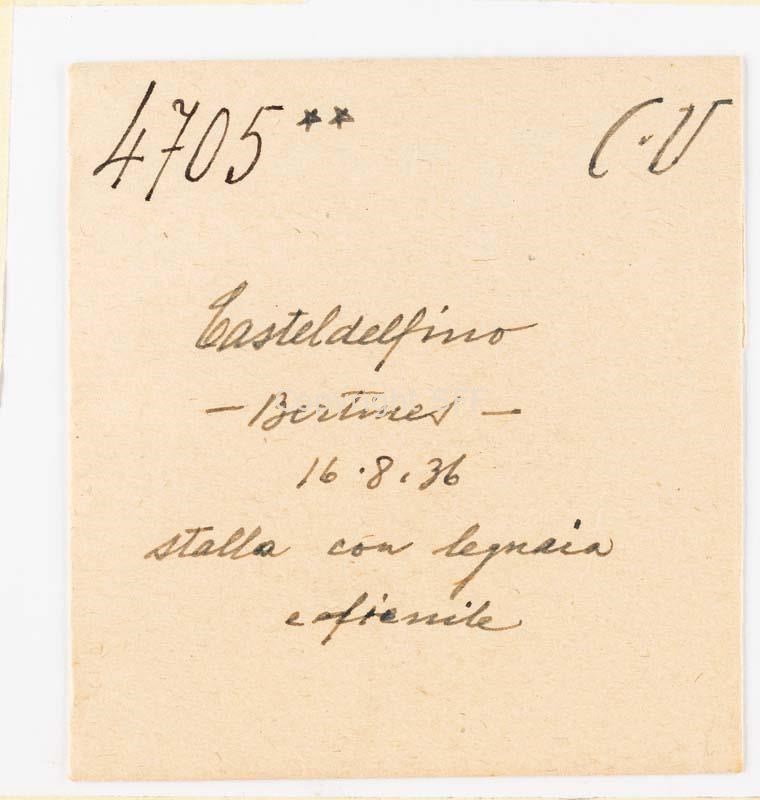 4705** C.V
Casteldelfino
— Bertines —
16.8.36
stalla con legnaia
e fienile